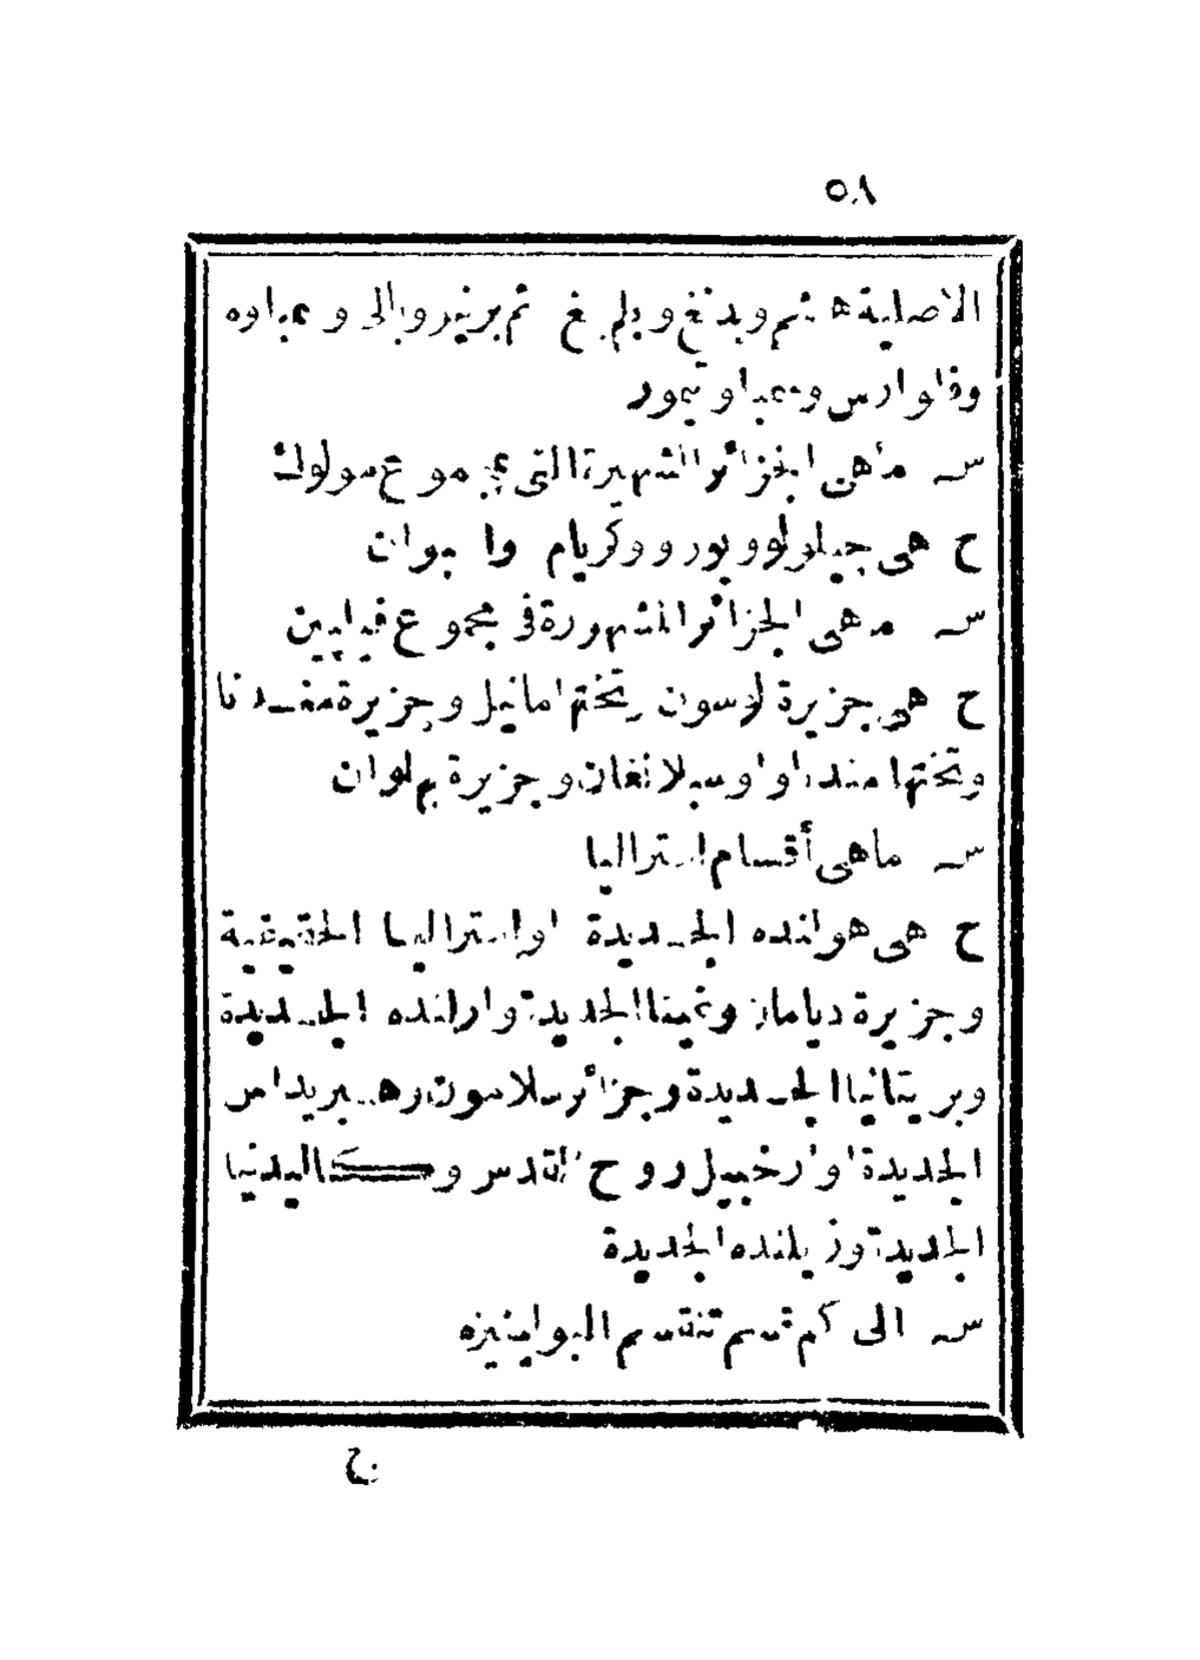 ٥٨
الاصلية ثم وبدنغ و ثم وبالى و
وفلوارس و وتيمور
س ماهى الجزائر الشهيرة التى بمجموع مولوك
ح هى جيلولو وبورو وكريام وا
س ماهى الجزائر المشهورة فى مجموع فيلبين
ح هى جزيرة لوسون وتختها مانيل وجزيرة
وتختها منداناوا وسبلانغان وجزيرة بهلوان
س ماهى أقسام استراليا
ح هى هولنده الجديدة او استراليا الحقيقية
وجزيرة ديامان وغينا الجديدة وارلنده الجديدة
وبريتانيا الجديدة وجزائر سلاسون وهبريداس
الجديدة او ارخبيل روح القدس وكاليدنيا
الجديدة وزيلنده الجديدة
س الى كم قسم تنقسم البولينيزه
ح